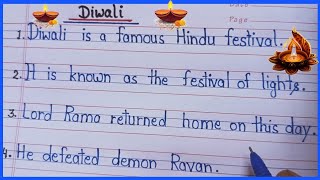 Diwali
Date
Page
1. Diwali is a famous Hindu festival.
2. It is known as the festival of lights.
3. Lord Rama returned home on this day.
4. He defeated demon Ravan.